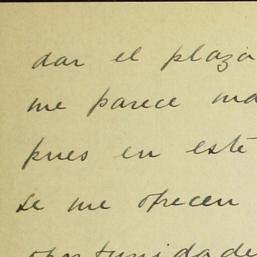 dar el plazo
me parece
pues en este
se me ofrecen
oportunidade